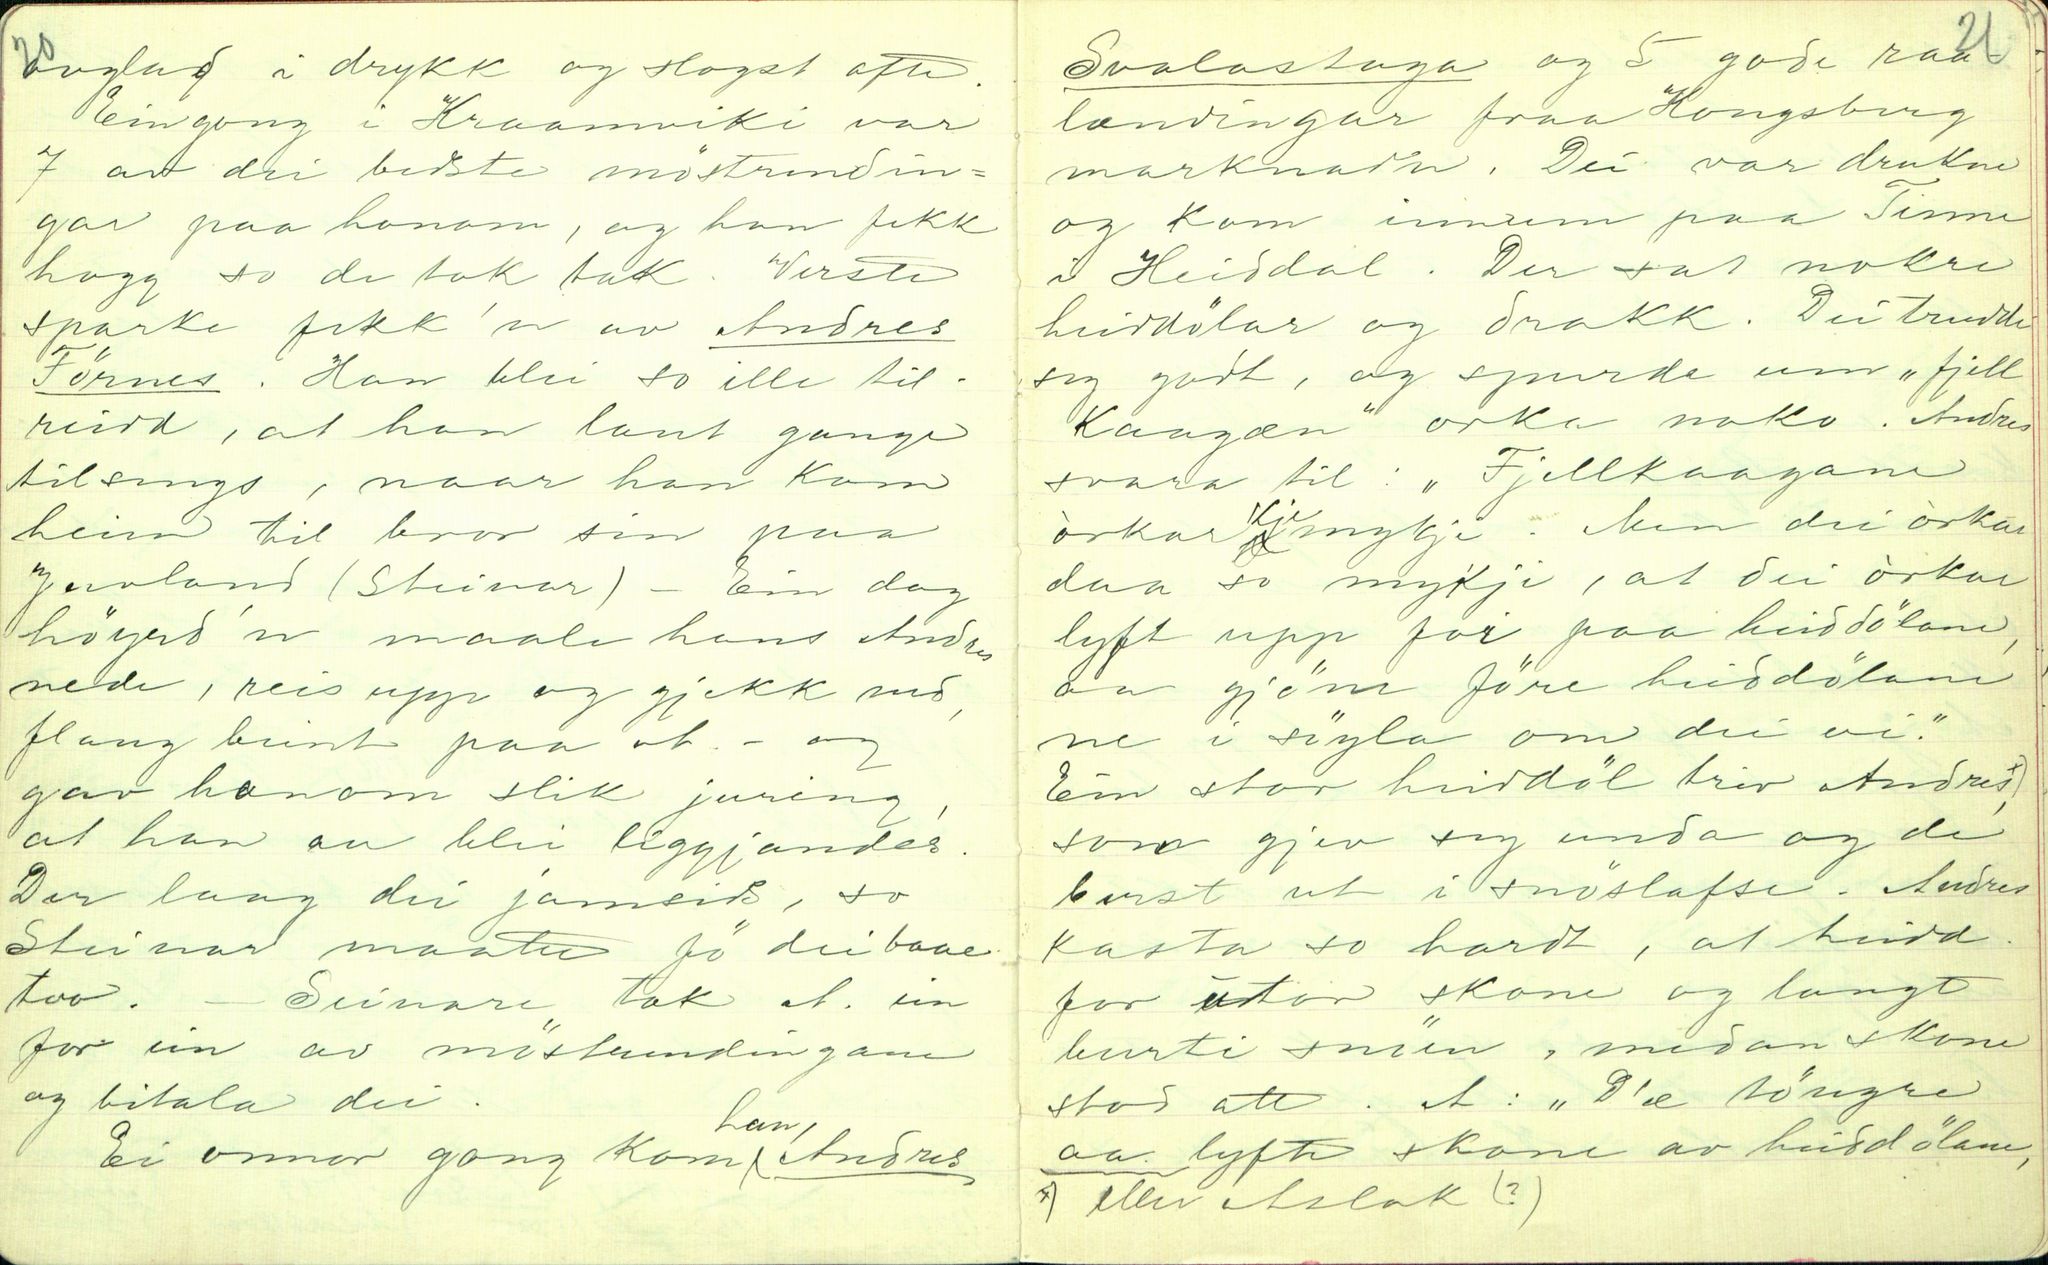 20
ovglad i drykk og slogst ofte.
Eingong i Kraamviki var
7 av dei bedste möstrendin=
gar paa honom, og han fekk
hogg so de tok tak. Verste
sparke fekk'n av Andres
Förnes. Han blei so ille til-
reidd, at han laut gange
tilsengs, naar han kom
heim til bror sin paa
Juvland (Steinar) – Ein dag
höyrd'n maale hans Andres
nede, reis upp og gjekk ned,
flaug beint paa A. – og
gav honom slik juring,
at han au blei liggjandes.
Der laag dei jamsids, so
Steinar maatte fö dei baae
too. – Seinare tok A. ein
for ein av möstrendingane
og bitala dei.
Ei onnor gong kom han, Andres
21
Svalastoga og 5 gode raa-
lendingar fraa Kongsberg
marknad'n. Dei var drukne
og kom innum paa Tinne
i Heiddal. Der sat nokre
heiddölar og drakk. Dei trudde
seg godt, og spurde um „fjell
kaagæn" orka noko. Andres
svara til: „Fjellkaagane
òrkar kje mykji. Men dei òrkar
daa so mykji, at dei òrkar
lyft upp foi paa heiddölane,
aa gjöre före heiddölane
ne i söyla om dei vi."
Ein stor heiddöl treiv Andres x),
som gjev seg unda og de
berst ut i snöslafse. Andres
kasta so hardt, at heidd.
for utor skone og langt
burti snöen, medan skone
stod atte. A: „D'æ töngre
aa lyfte skone av heiddölane,
x) eller Aslak (?)